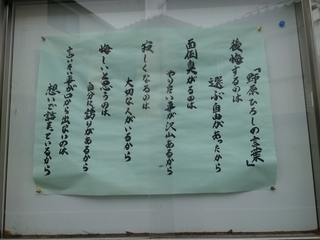 「野原ひろしの言葉」
後悔するのは
選ぶ自由があったから
面倒臭がるのは
やりたい事が沢山あるから
寂しくなるのは
大切な人がいるから
悔しいと思うのは
自分に誇りがあるから
言いたい事が口から出ないのは
想いで詰まっているから